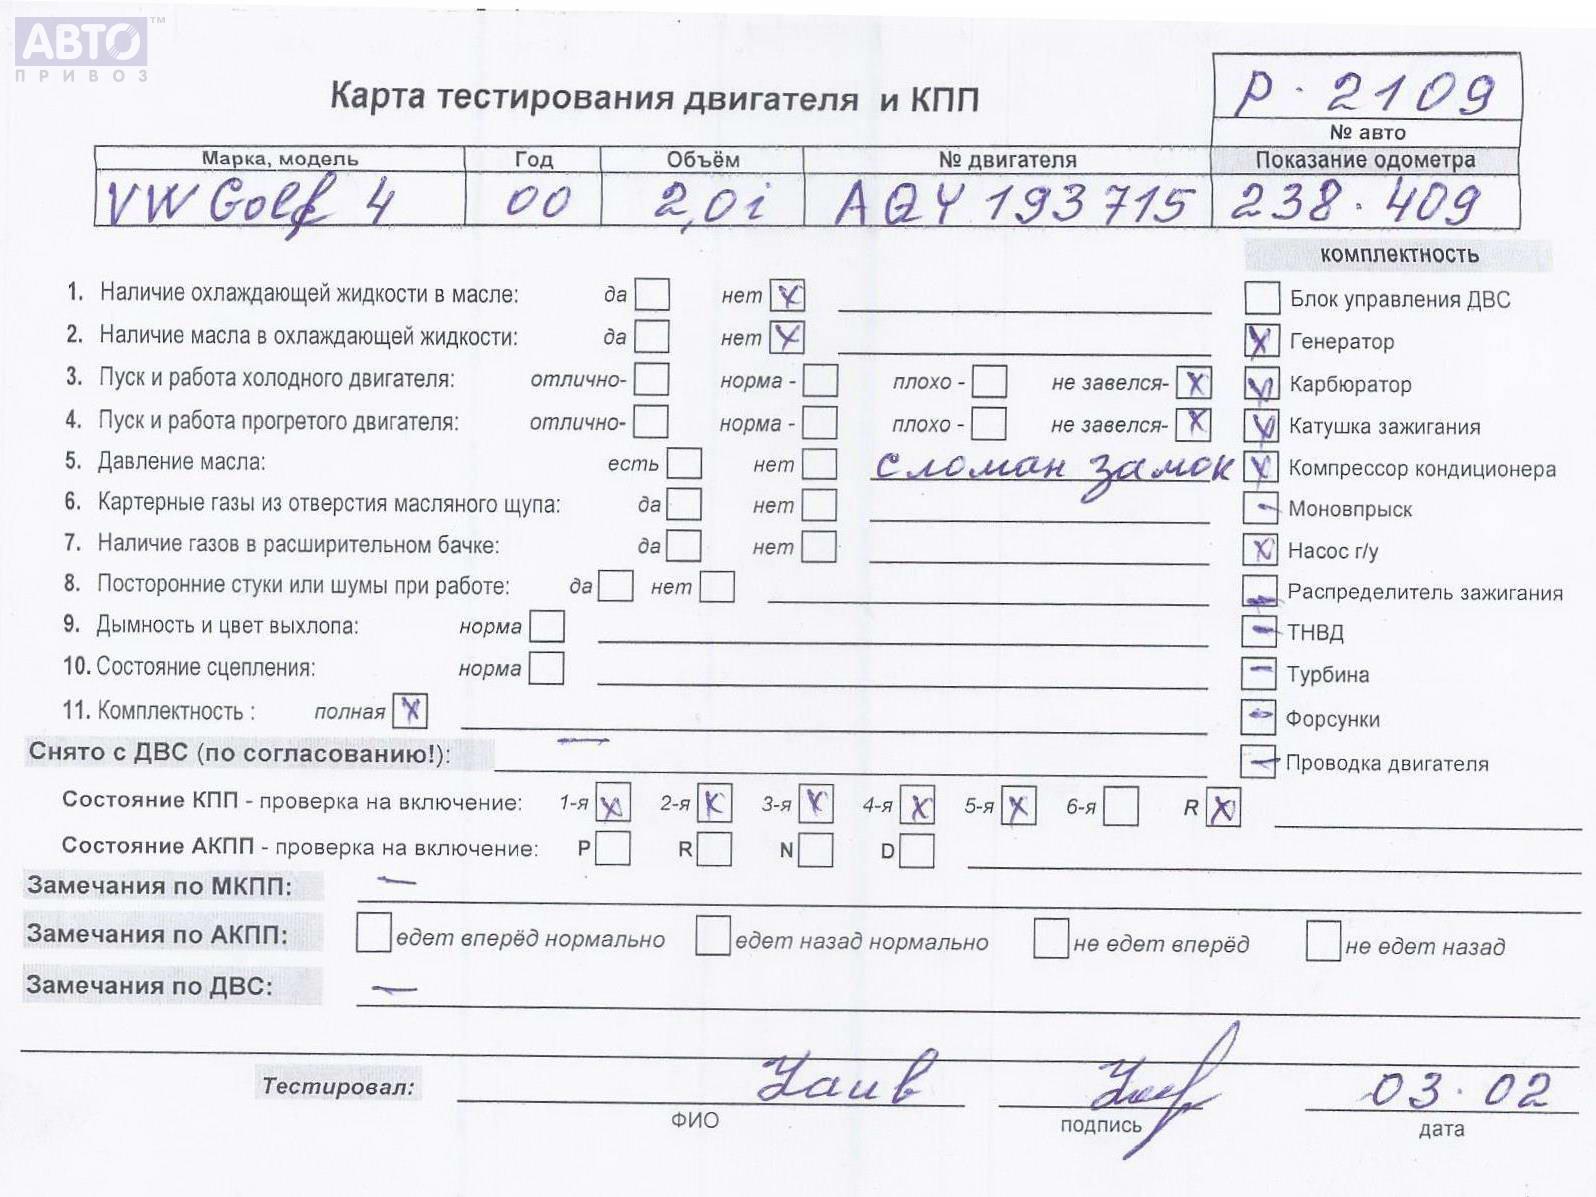 АВТО™
ПРИВОЗ
Карта тестирования двигателя и КПП
Р. 2109
№ авто
Марка, модель Год Объём № двигателя Показание одометра
VW Golf 4 00 2,0i AQY 193715 238.409
комплектность
1. Наличие охлаждающей жидкости в масле: да нет x
Блок управления ДВС
2. Наличие масла в охлаждающей жидкости: да нет x
x Генератор
3. Пуск и работа холодного двигателя: отлично- норма - плохо - не завелся- x
x Карбюратор
4. Пуск и работа прогретого двигателя: отлично- норма - плохо - не завелся- x
x Катушка зажигания
5. Давление масла: есть нет сломан замок
x Компрессор кондиционера
6. Картерные газы из отверстия масляного щупа: да нет
- Моновпрыск
7. Наличие газов в расширительном бачке: да нет
x Насос г/у
8. Посторонние стуки или шумы при работе: да нет
- Распределитель зажигания
9. Дымность и цвет выхлопа: норма
- ТНВД
10. Состояние сцепления: норма
- Турбина
11. Комплектность : полная x
- Форсунки
Снято с ДВС (по согласованию!): —
- Проводка двигателя
Состояние КПП - проверка на включение: 1-я x 2-я x 3-я x 4-я x 5-я x 6-я R x
Состояние АКПП - проверка на включение: P R N D
Замечания по МКПП: —
Замечания по АКПП: едет вперёд нормально едет назад нормально не едет вперёд не едет назад
Замечания по ДВС: —
Тестировал: 03.02
ФИО подпись дата